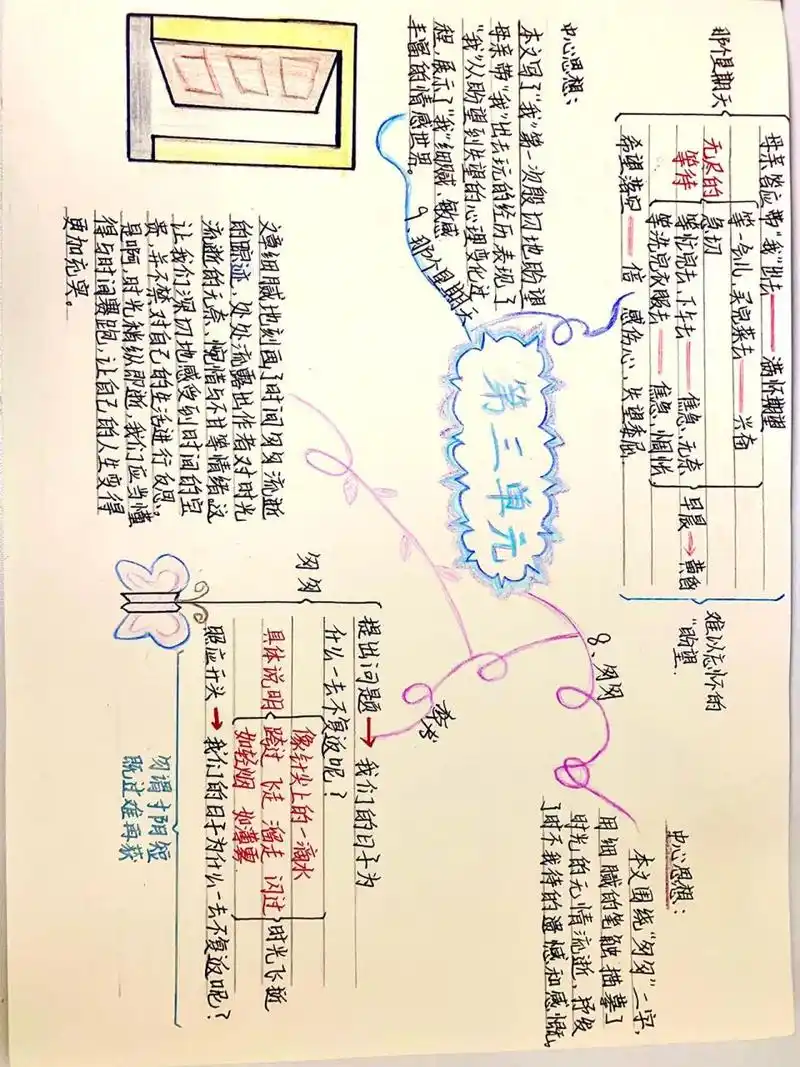 第三单元
8、匆匆
中心思想：
本文围绕“匆匆”一字，
用细腻的笔触描摹了
时光的无情流逝，抒发
了时不我待的遗憾和感慨。
匆匆
提出问题→我们的日子为
什么一去不复返呢？
具体说明
像针尖上的一滴水
跨过 飞走 溜走 闪过
如轻烟 如薄雾
时光飞逝
照应开头→我们的日子为什么一去不复返呢？
勿谓寸阴短
既过难再获
文章细腻地刻画了时间匆匆流逝
的踪迹，处处流露出作者对时光
流逝的无奈、惋惜与不甘等情绪，这
让我们深切地感受到时间的宝
贵，并不禁对自己的生活进行反思。
是啊，时光稍纵即逝，我们应当懂
得与时间赛跑，让自己的人生变得
更加充实。
9、那个星期天
中心思想：
本文写了“我”第一次殷切地盼望
母亲带“我”出去玩的经历，表现了
“我”从盼望到失望的心理变化过
程，展示了“我”细腻、敏感
丰富的情感世界。
那个星期天
母亲答应带“我”出去——满怀期望
无尽的
等待
等一会儿，买完菜去——兴奋
急切
等忙完去，下午去——焦急、无奈
等洗完衣服去——焦急、惆怅
早晨→黄昏
希望落空——倍感伤心，失望委屈
难以忘怀的
“盼望”